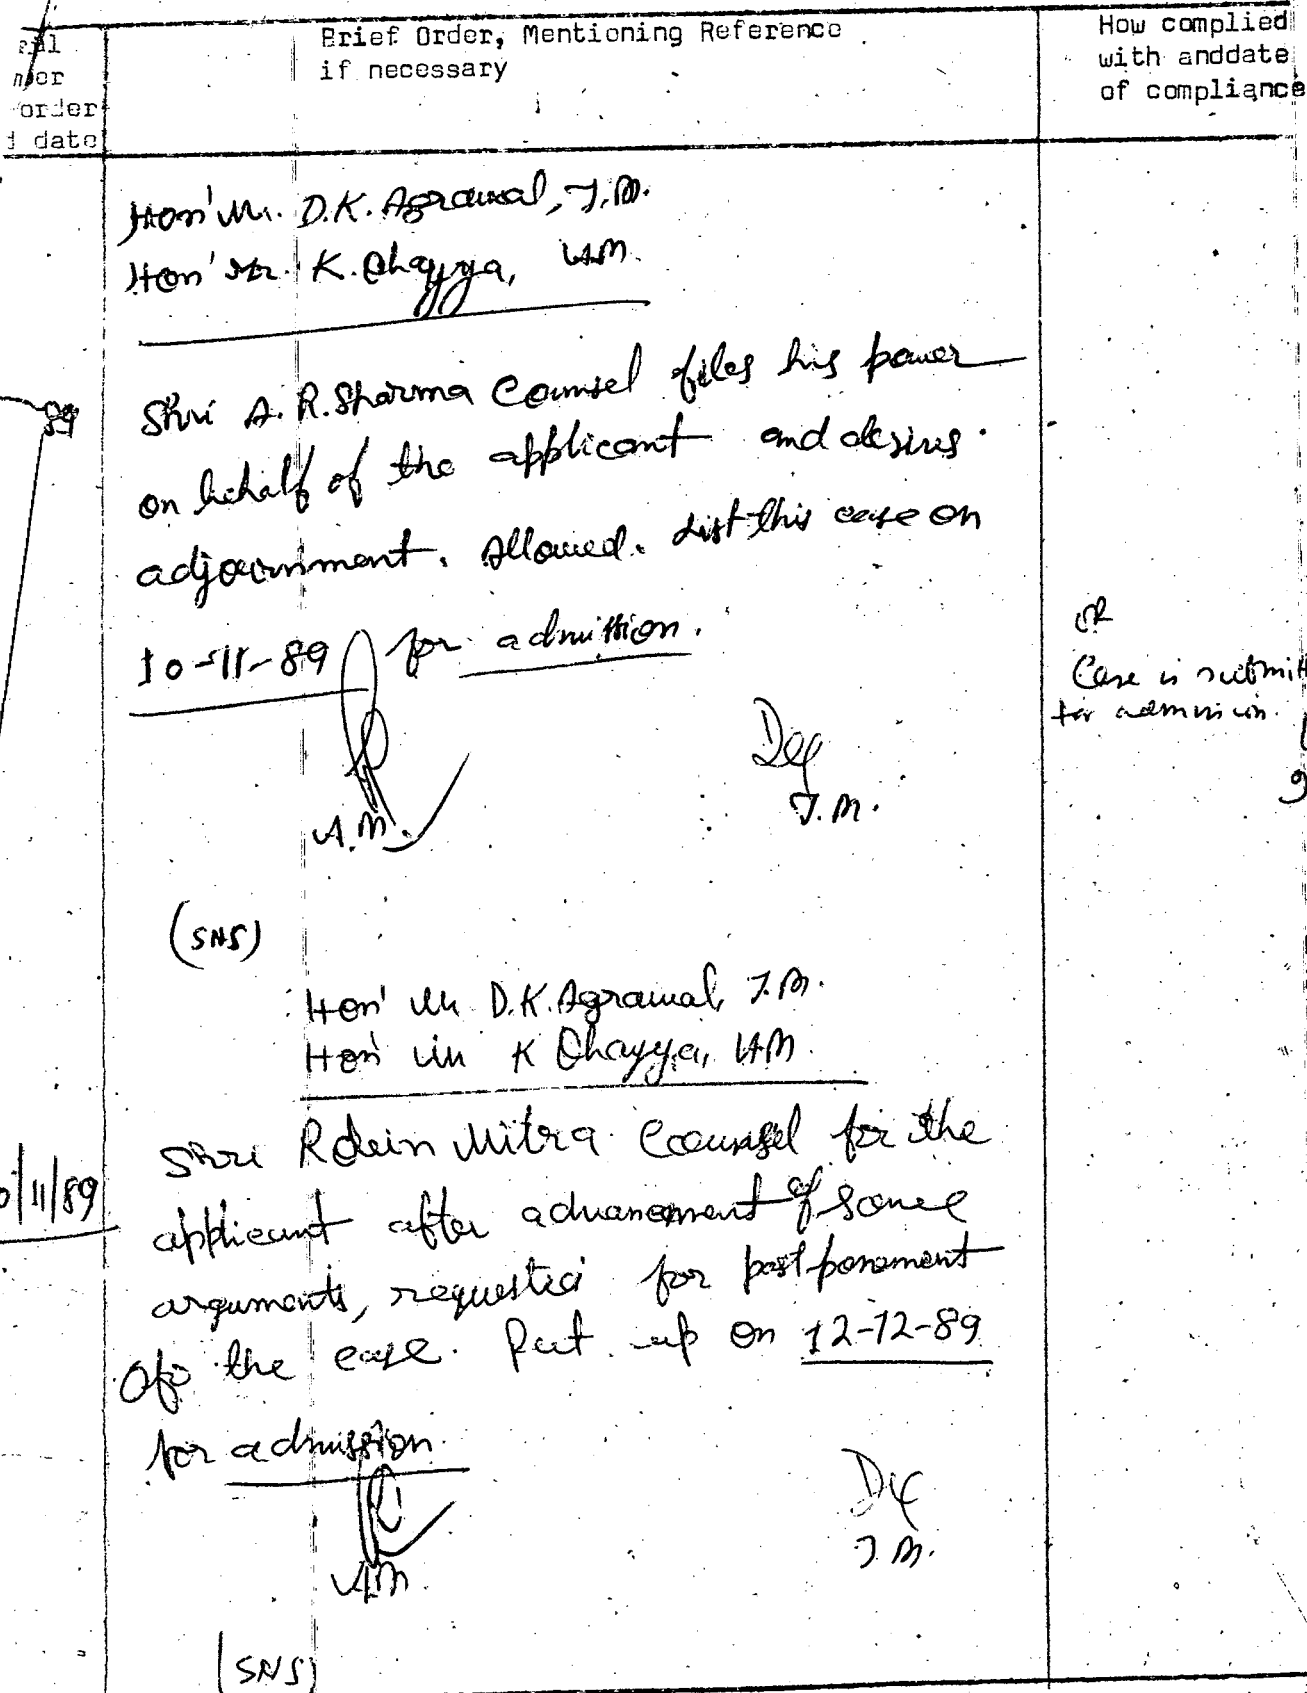 order
date
Brief Order, Mentioning Reference
if necessary
How complied
with anddate
of compliance
Hon' Mr. D.K. Agrawal, J.M.
Hon' Mr. K. Obayya, A.M.
89
Shri A.R. Sharma Counsel files his power
on behalf of the applicant and desires
adjournment. Allowed. List this case on
10-11-89 for admission.
A.M.
J.M.
OR
Case is submit
for admission.
(SNS)
Hon' Mr D.K. Agrawal, J.M.
Hon' Mr K Obayya, A.M.
/11/89
Shri Robin Mitra Counsel for the
applicant after advancement of some
arguments, requested for postponement
of the case. Put up on 12-12-89
for admission.
A.M.
J.M.
(SNS)